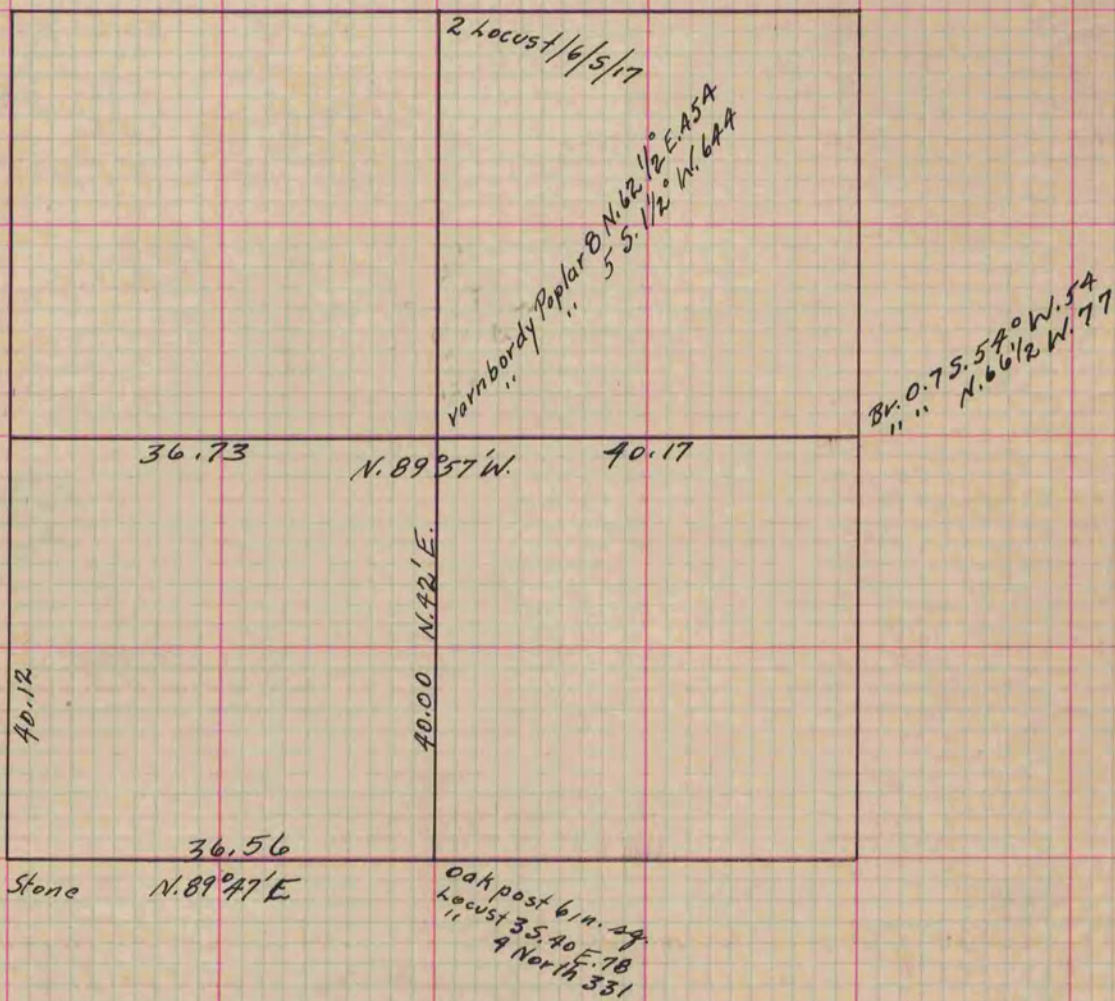 2 Locust/6/5/17
varnbordy Poplar 8 N. 62 1/2° E. 454
" " 5 S. 1/2° W. 644
Br. 0.7 S. 54° W. 54
" " N. 66 1/2 W. 77
36.73
40.17
N. 89°57' W.
40.00 N. 42' E.
40.12
36.56
Stone
N. 89°47' E
Oak post 6 in. sq.
Locust 3 S. 40 E. 78
" 4 North 331